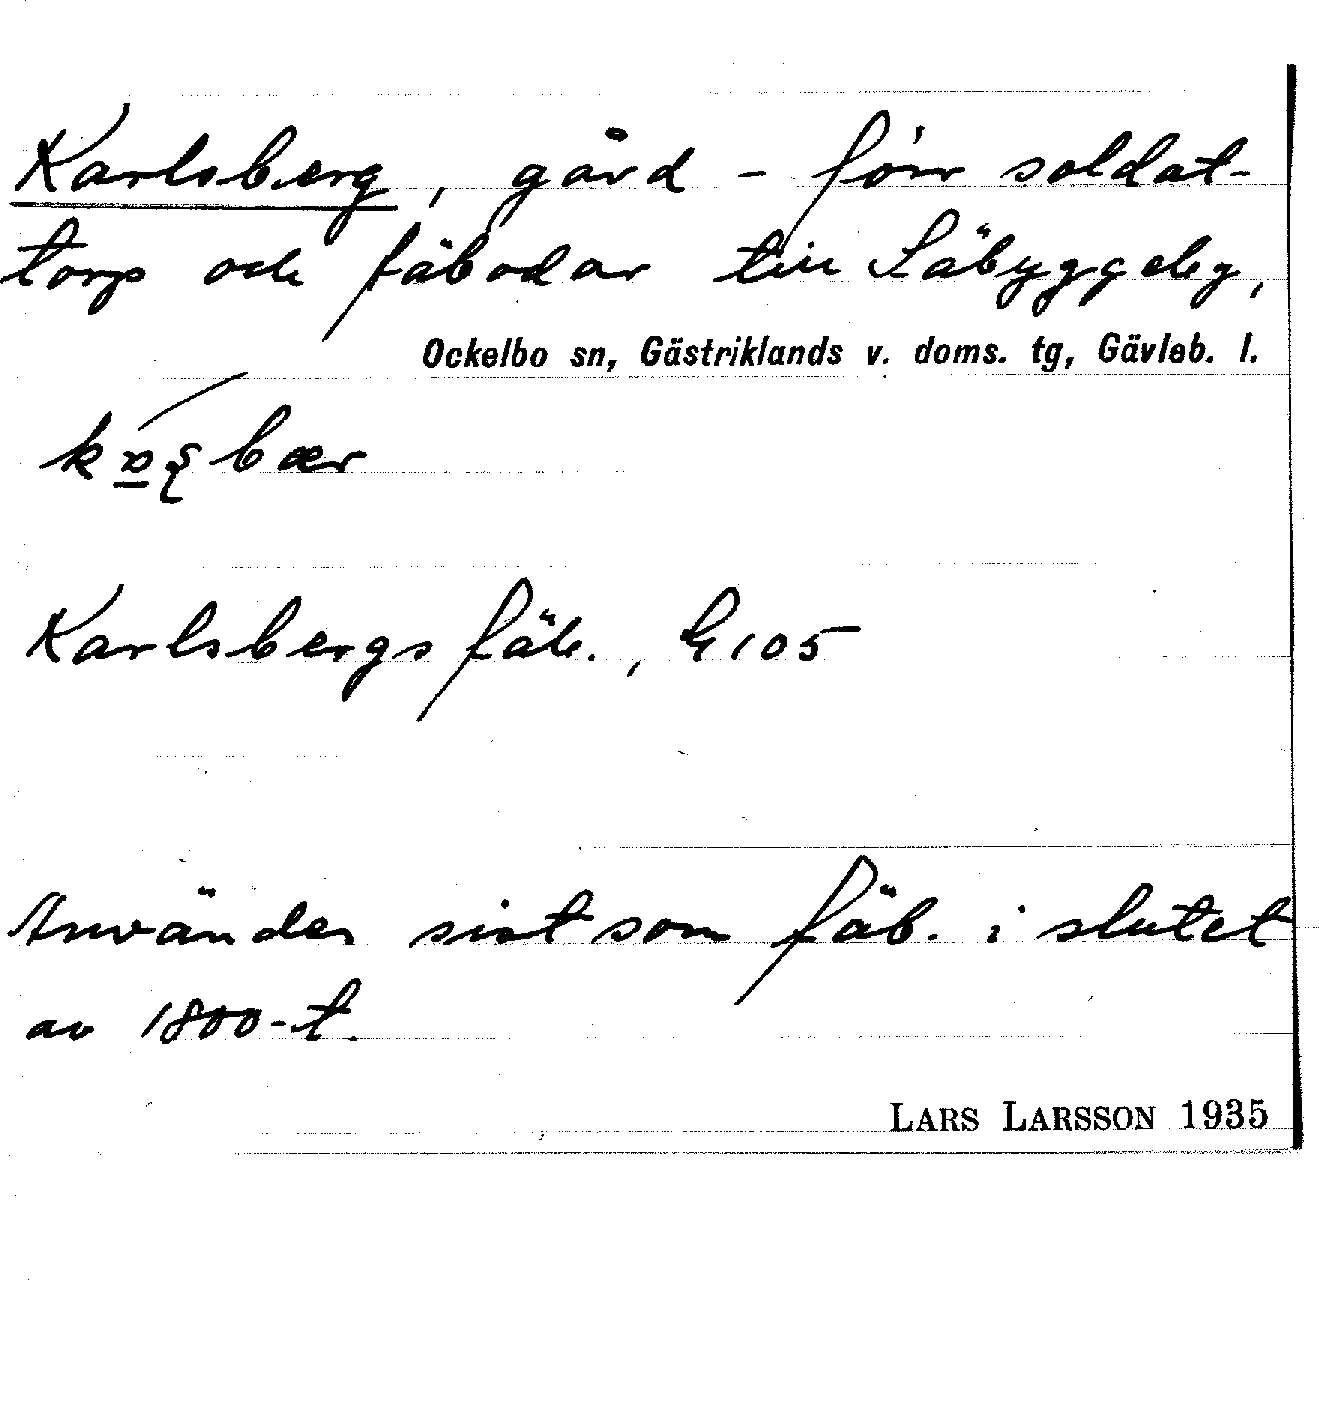 Karlsberg, gård - förr soldat-
torp och fäbodar till Säbyggeby,
Ockelbo sn, Gästriklands v. doms. tg, Gävleb. l.
Karlsbergs fäb., G 105
Användes sist som fäb. i slutet
av 1800-t.
LARS LARSSON 1935